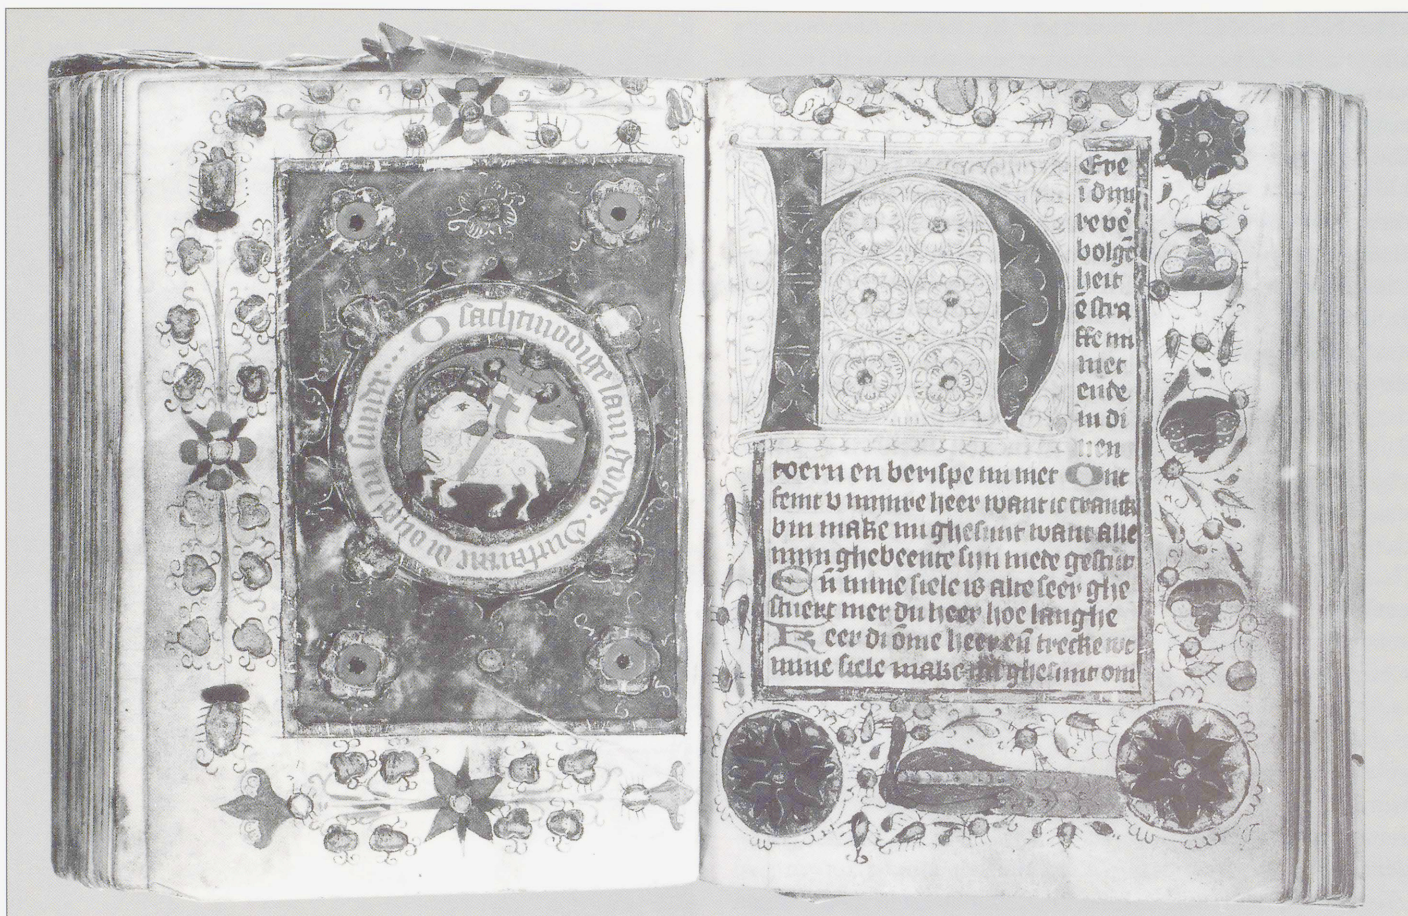 O sachtmodige lam godes. Ontfarme di onser. mi sunder...
HEre
i dinr
re v̄e
bolgē
heit
ē stra
ffe mi
niet
ende
in di
nen
toern en berispe mi niet Ont
ferme v mijnre heer want ic cranck
bin make mi ghesunt want alle
mijn ghebeente sijn mede gestuert
Eñ mine siele is alte seer ghe
stuert mer du heer hoe langhe
Heer di ōme heer eñ trecke wt
mine siele make mi ghesunt om